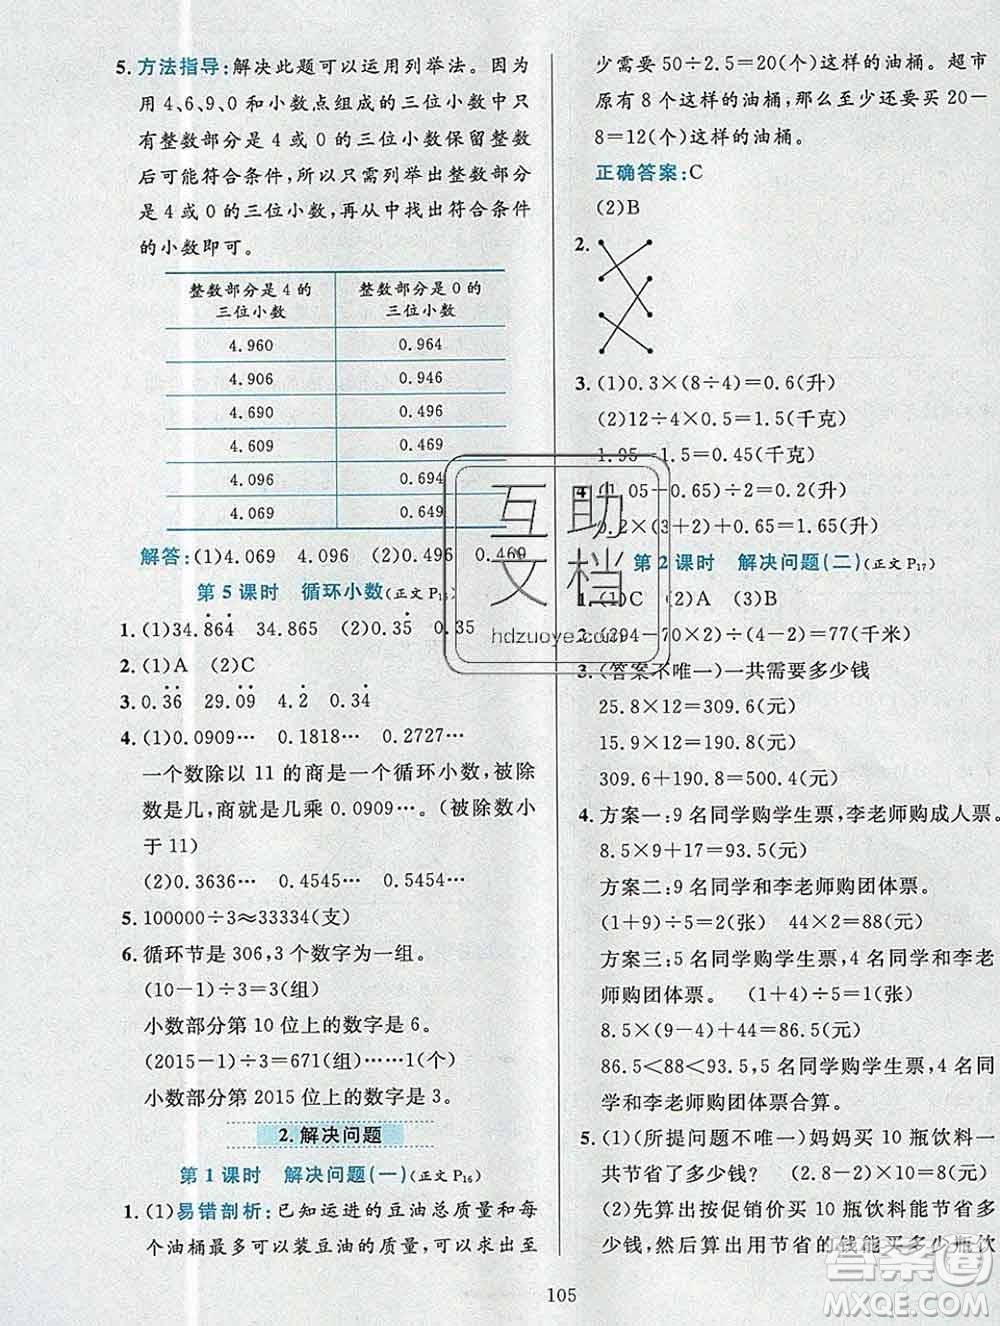 5. 方法指导:解决此题可以运用列举法。因为
用 4、6、9、0 和小数点组成的三位小数中只
有整数部分是 4 或 0 的三位小数保留整数
后可能符合条件,所以只需列举出整数部分
是 4 或 0 的三位小数,再从中找出符合条件
的小数即可。
整数部分是 4 的三位小数 整数部分是 0 的三位小数
4.960 0.964
4.906 0.946
4.690 0.496
4.609 0.469
4.096 0.694
4.069 0.649
解答:(1)4.069 4.096 (2)0.496 0.469
第 5 课时 循环小数(正文 P₁₅)
1. (1)34.8̇64̇ 34.865 (2)0.3̇5̇ 0.35
2. (1)A (2)C
3. 0.3̇6̇ 29.0̇9̇ 4.2̇ 0.34̇
4. (1)0.0909… 0.1818… 0.2727…
一个数除以 11 的商是一个循环小数,被除
数是几,商就是几乘 0.0909…。(被除数小
于 11)
(2)0.3636… 0.4545… 0.5454…
5. 100000÷3≈33334(支)
6. 循环节是 306,3 个数字为一组。
(10-1)÷3=3(组)
小数部分第 10 位上的数字是 6。
(2015-1)÷3=671(组)……1(个)
小数部分第 2015 位上的数字是 3。
2. 解决问题
第 1 课时 解决问题(一)(正文 P₁₆)
1. (1)易错剖析:已知运进的豆油总质量和每
个油桶最多可以装豆油的质量,可以求出至
少需要 50÷2.5=20(个)这样的油桶。超市
原有 8 个这样的油桶,那么至少还要买 20-
8=12(个)这样的油桶。
正确答案:C
(2)B
2.
3. (1)0.3×(8÷4)=0.6(升)
(2)12÷4×0.5=1.5(千克)
1.95-1.5=0.45(千克)
4. (1.05-0.65)÷2=0.2(升)
0.2×(3+2)+0.65=1.65(升)
第 2 课时 解决问题(二)(正文 P₁₇)
1. (1)C (2)A (3)B
2. (294-70×2)÷2=77(千米)
3. (答案不唯一)一共需要多少钱
25.8×12=309.6(元)
15.9×12=190.8(元)
309.6+190.8=500.4(元)
4. 方案一:9 名同学购学生票,李老师购成人票。
8.5×9+17=93.5(元)
方案二:9 名同学和李老师购团体票。
(1+9)÷5=2(张) 44×2=88(元)
方案三:5 名同学购学生票,4 名同学和李老
师购团体票。 (1+4)÷5=1(张)
8.5×(9-4)+44=86.5(元)
86.5<88<93.5,5 名同学购学生票,4 名同
学和李老师购团体票合算。
5. (1)(所提问题不唯一)妈妈买 10 瓶饮料一
共节省了多少钱? (2.8-2)×10=8(元)
(2)先算出按促销价买 10 瓶饮料能节省多
少钱,然后算出用节省的钱能买多少瓶饮
105
互助文档
hdzuoye.com
答案圈
MXQE.COM